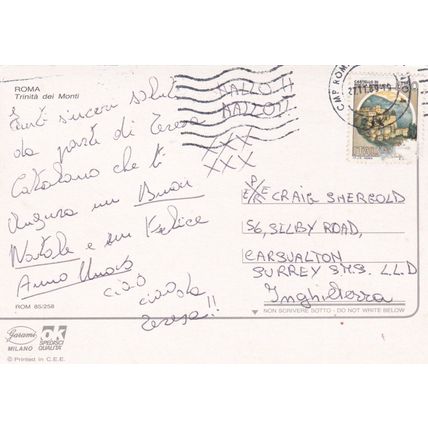 ROMA
Trinità dei Monti
Tanti sinceri saluti
da parte di Teresa
Catalano che ti
Augura un Buon
Natale e un Felice
Anno Nuovo
ciao
ciao da
Teresa!!
HALLO!!
HALLO!!
XXX
XXX
CMP ROMA
27.11.89-19
ITALIA
CRAIG SHERGOLD
56, SILBY ROAD,
CARSUALTON
SURREY SMS. L.L.D
Inghilterra
ROM 85/258
NON SCRIVERE SOTTO - DO NOT WRITE BELOW
Garami
MILANO
ok
SPEDIRCI
QUALITÀ
© Printed in C.E.E.